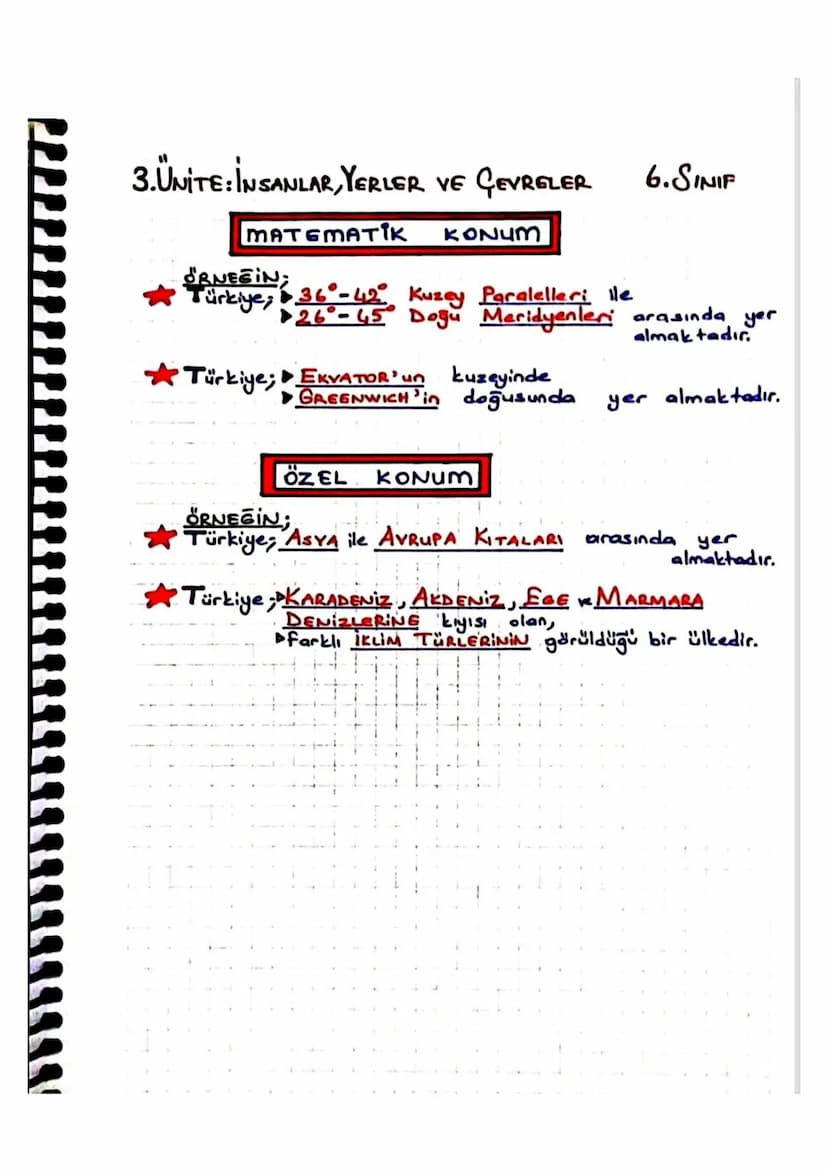 3.ÜNİTE: İNSANLAR, YERLER VE ÇEVRELER 6.SINIF
MATEMATİK KONUM
ÖRNEĞİN;
Türkiye; 36°-42° Kuzey Paralelleri ile
26°-45° Doğu Meridyenleri arasında yer
almaktadır.
Türkiye; EKVATOR'un kuzeyinde
GREENWICH'in doğusunda yer almaktadır.
ÖZEL KONUM
ÖRNEĞİN;
Türkiye; ASYA ile AVRUPA KITALARI arasında yer
almaktadır.
Türkiye; KARADENİZ, AKDENİZ, EGE ve MARMARA
DENİZLERİNE kıyısı olan,
farklı İKLİM TÜRLERİNİN görüldüğü bir ülkedir.